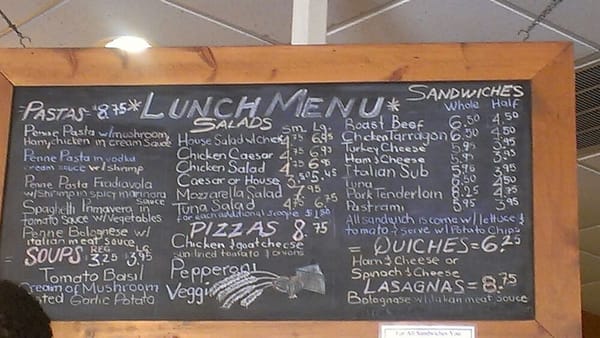 *LUNCH MENU*
PASTAS - 8.75
Penne Pasta w/mushroom
Ham, chicken in cream sauce
Penne Pasta in vodka
cream sauce w/shrimp
Penne Pasta Fradiavola
w/Shrimp in spicy marinara
sauce
Spaghetti Primavera in
tomato sauce w/vegetables
Penne Bolognese w/
italian meat sauce
= SOUPS REG. 3.25 LG. 3.95
Tomato Basil
Cream of Mushroom
Garlic Potato
SALADS
Sm. Lg.
House Salad w/Chkn
Chicken Caesar
Chicken Salad
Caesar or House
Mozzarella Salad 7.95
Tuna Salad 4.75 6.75
for each additional scoop
PIZZAS 8.75
Chicken & goat cheese
sun dried tomato & onions
Pepperoni
Veggie
SANDWICHES
Whole Half
Roast Beef 6.50 4.50
Chicken tarragon 6.50 4.50
Turkey Cheese 5.95 3.95
Ham & Cheese 5.95 3.95
Italian Sub
Tuna
Pork Tenderloin
Pastrami 6.95 3.95
All sandwich is come w/ lettuce &
tomato & serve w/ Potato Chips
= QUICHES = 6.25
Ham & Cheese or
Spinach & Cheese
LASAGNAS = 8.75
Bolognase w/italian meat sauce
For All Sandwiches You